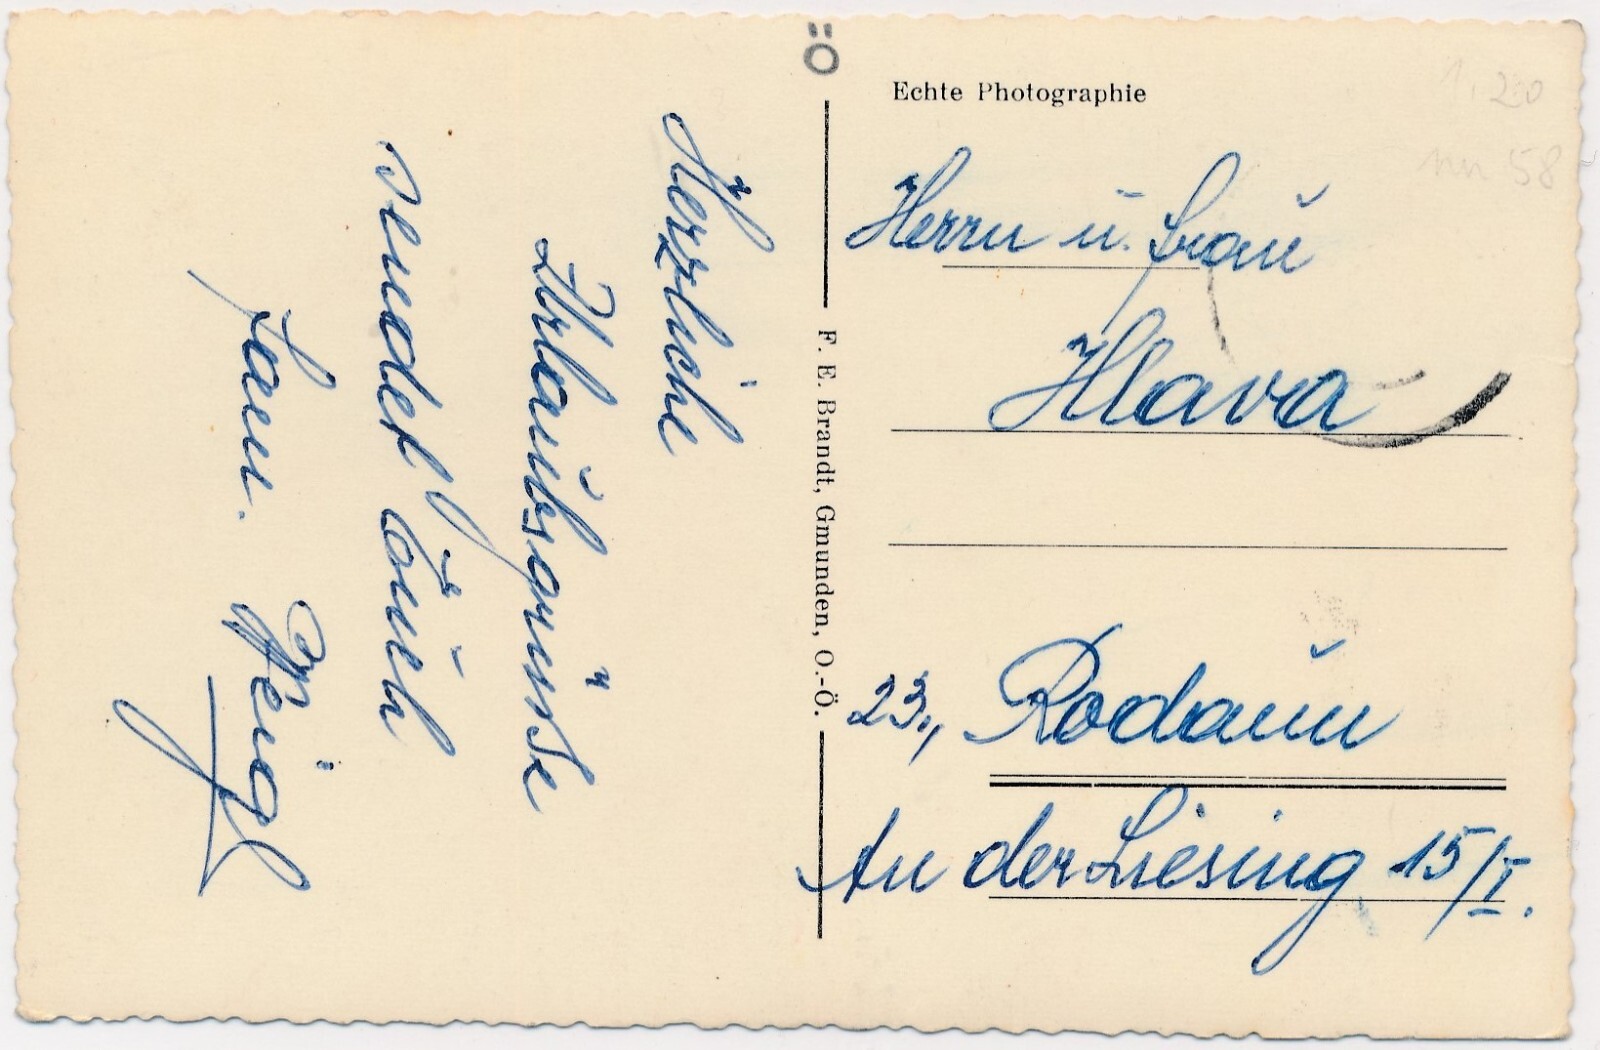 Ö
Echte Photographie
1.20
58
Herzliche
Urlaubsgrüsse
sendet Euch
Fam. Weigl
F. E. Brandt, Gmunden, O.-Ö.
Herrn u. Frau
Hlava
23., Rodaun
An der Liesing 15/I.